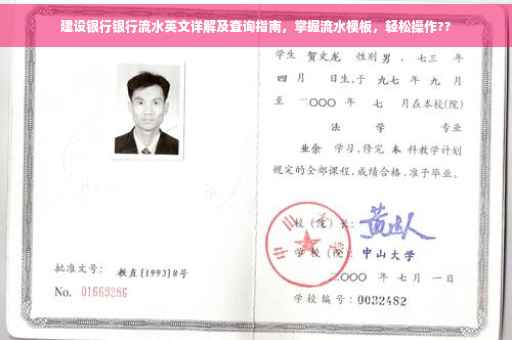 建设银行银行流水英文详解及查询指南，掌握流水模板，轻松操作??
学生 贺文龙 性别 男，七三 年
四 月 日生,于 九七 年 九 月
至 二〇〇〇 年 七 月在本校(院)
法 学 专业
业余 学习,修完 本 科教学计划
规定的全部课程,成绩合格,准予毕业。
校(院)长:
学校(院): 中山大学
二〇〇〇 年 七 月 一 日
批准文号: 教直[1993]8号
No. 01663286
学校编号: 0032482